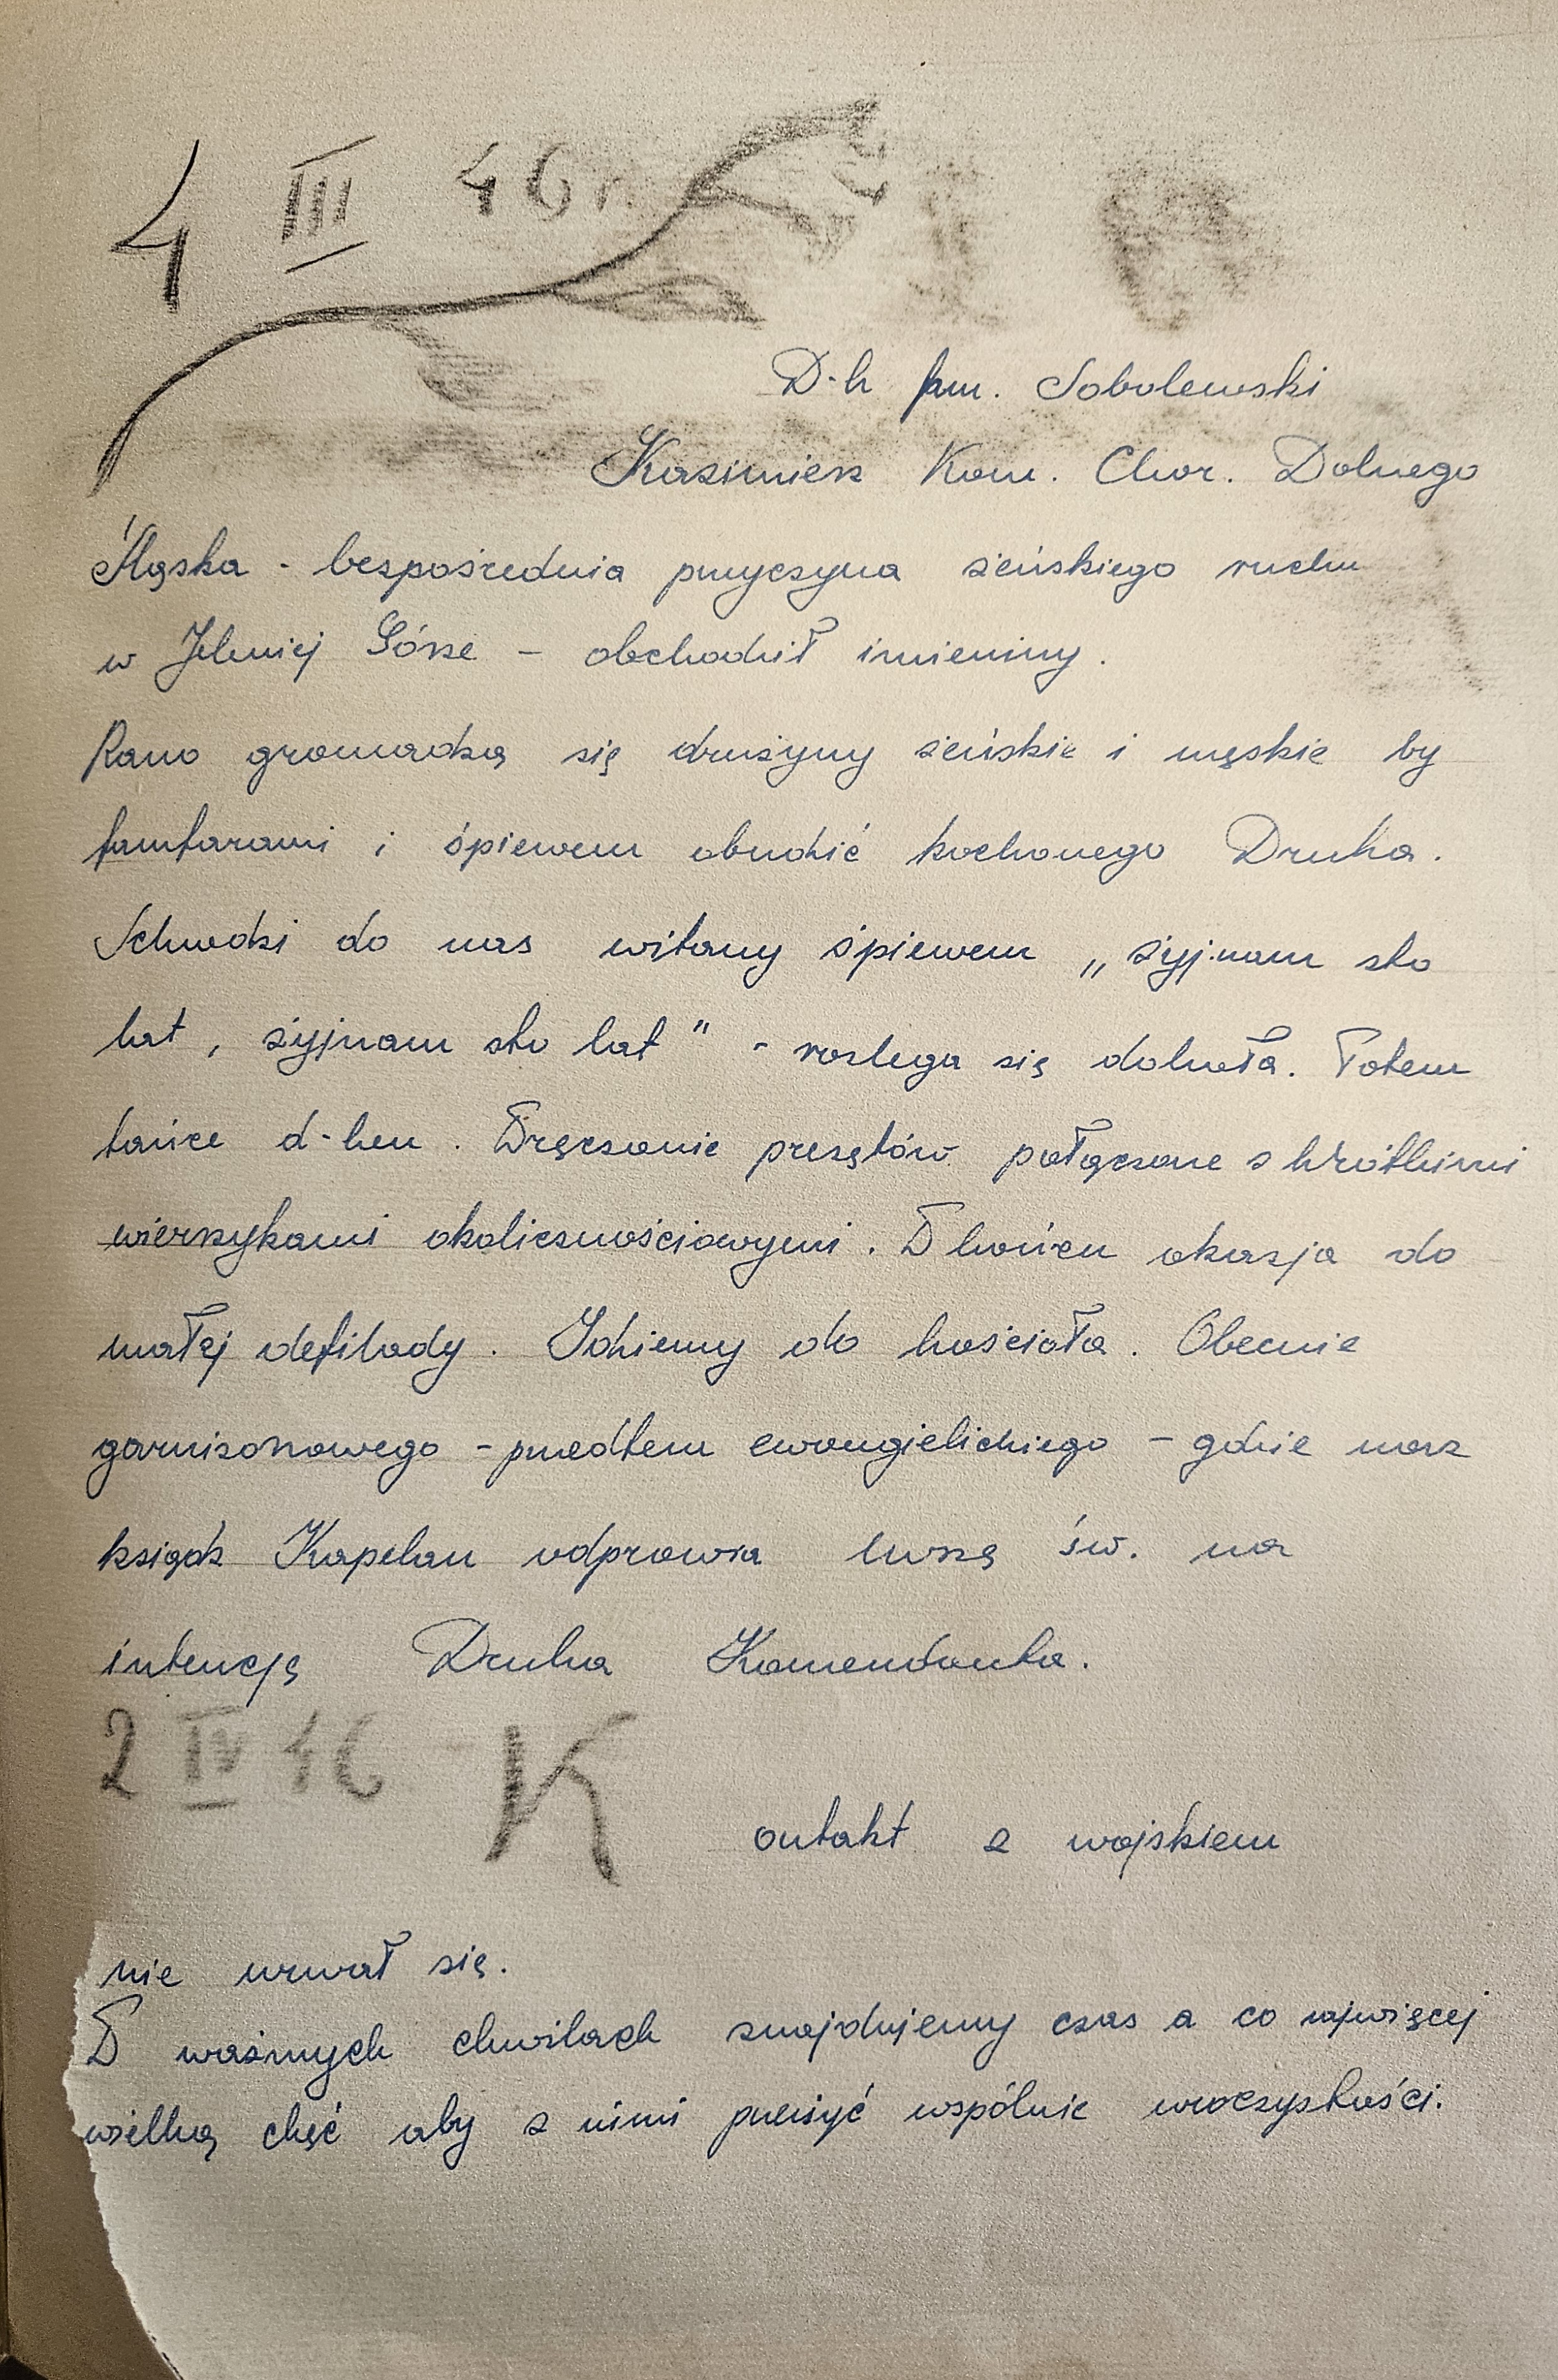 4 III 46 r.
D-h hm. Sobolewski
Kazimierz Kom. Chor. Dolnego
Śląska - bezpośrednia przyczyna żeńskiego ruchu
w Jeleniej Górze - obchodził imieniny.
Rano gromadzą się drużyny żeńskie i męskie by
fanfarami i śpiewem obudzić kochanego Druha.
Schodzi do nas witany śpiewem „żyj nam sto
lat, żyj nam sto lat" - rozlega się dokoła. Potem
tańce d-hen. Wręczanie prezętów połączone z krótkimi
wierszykami okolicznościowymi. W końcu okazja do
małej defilady. Idziemy do kościoła. Obecnie
garnizonowego - przedtem ewangielickiego - gdzie nasz
ksiądz Kapelan odprawia mszę św. na
intencję Druha Komendanta.
2 IV 46 K
ontakt z wojskiem
nie urwał się.
W ważnych chwilach znajdujemy czas a co najwięcej
wielką chęć aby z nimi przeżyć wspólnie uroczystości.